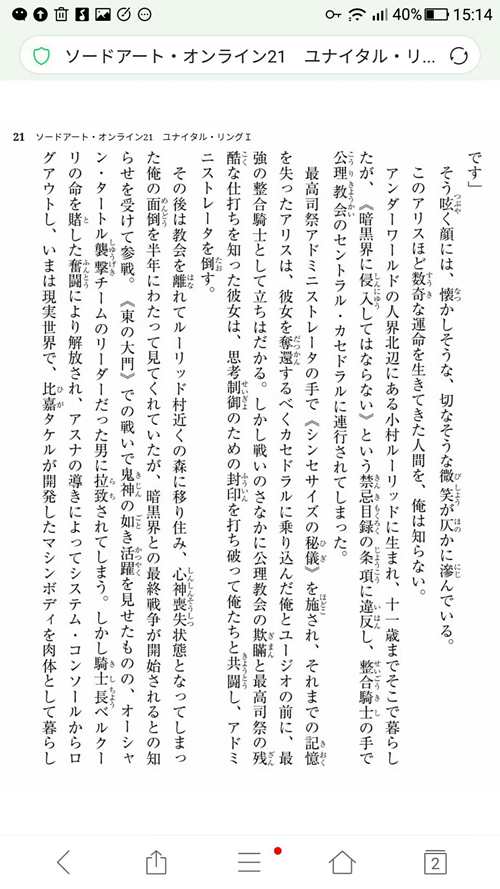 40% 15:14
ソードアート・オンライン21 ユナイタル・リ...
21 ソードアート・オンライン21 ユナイタル・リングⅠ
です」
そう呟く顔には、懐かしそうな、切なそうな微笑が仄かに滲んでいる。
このアリスほど数奇な運命を生きてきた人間を、俺は知らない。
アンダーワールドの人界北辺にある小村ルーリッドに生まれ、十一歳までそこで暮らし
たが、《暗黒界に侵入してはならない》という禁忌目録の条項に違反し、整合騎士の手で
公理教会のセントラル・カセドラルに連行されてしまった。
最高司祭アドミニストレータの手で《シンセサイズの秘儀》を施され、それまでの記憶
を失ったアリスは、彼女を奪還するべくカセドラルに乗り込んだ俺とユージオの前に、最
強の整合騎士として立ちはだかる。しかし戦いのさなかに公理教会の欺瞞と最高司祭の残
酷な仕打ちを知った彼女は、思考制御のための封印を打ち破って俺たちと共闘し、アドミ
ニストレータを倒す。
その後は教会を離れてルーリッド村近くの森に移り住み、心神喪失状態となってしまっ
た俺の面倒を半年にわたって見てくれていたが、暗黒界との最終戦争が開始されるとの知
らせを受けて参戦。《東の大門》での戦いで鬼神の如き活躍を見せたものの、オーシャ
ン・タートル襲撃チームのリーダーだった男に拉致されてしまう。しかし騎士長ベルクー
リの命を賭した奮闘により解放され、アスナの導きによってシステム・コンソールからロ
グアウトし、いまは現実世界で、比嘉タケルが開発したマシンボディを肉体として暮らし
2